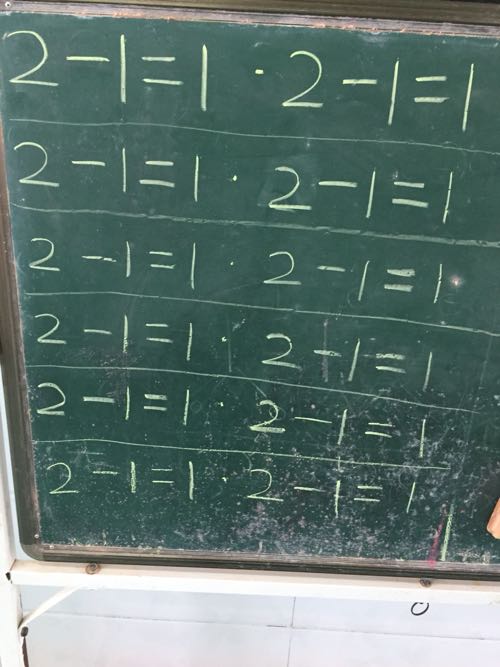 2-1=1 · 2-1=1
2-1=1 · 2-1=1
2-1=1 · 2-1=1
2-1=1 · 2-1=1
2-1=1 · 2-1=1
2-1=1 · 2-1=1